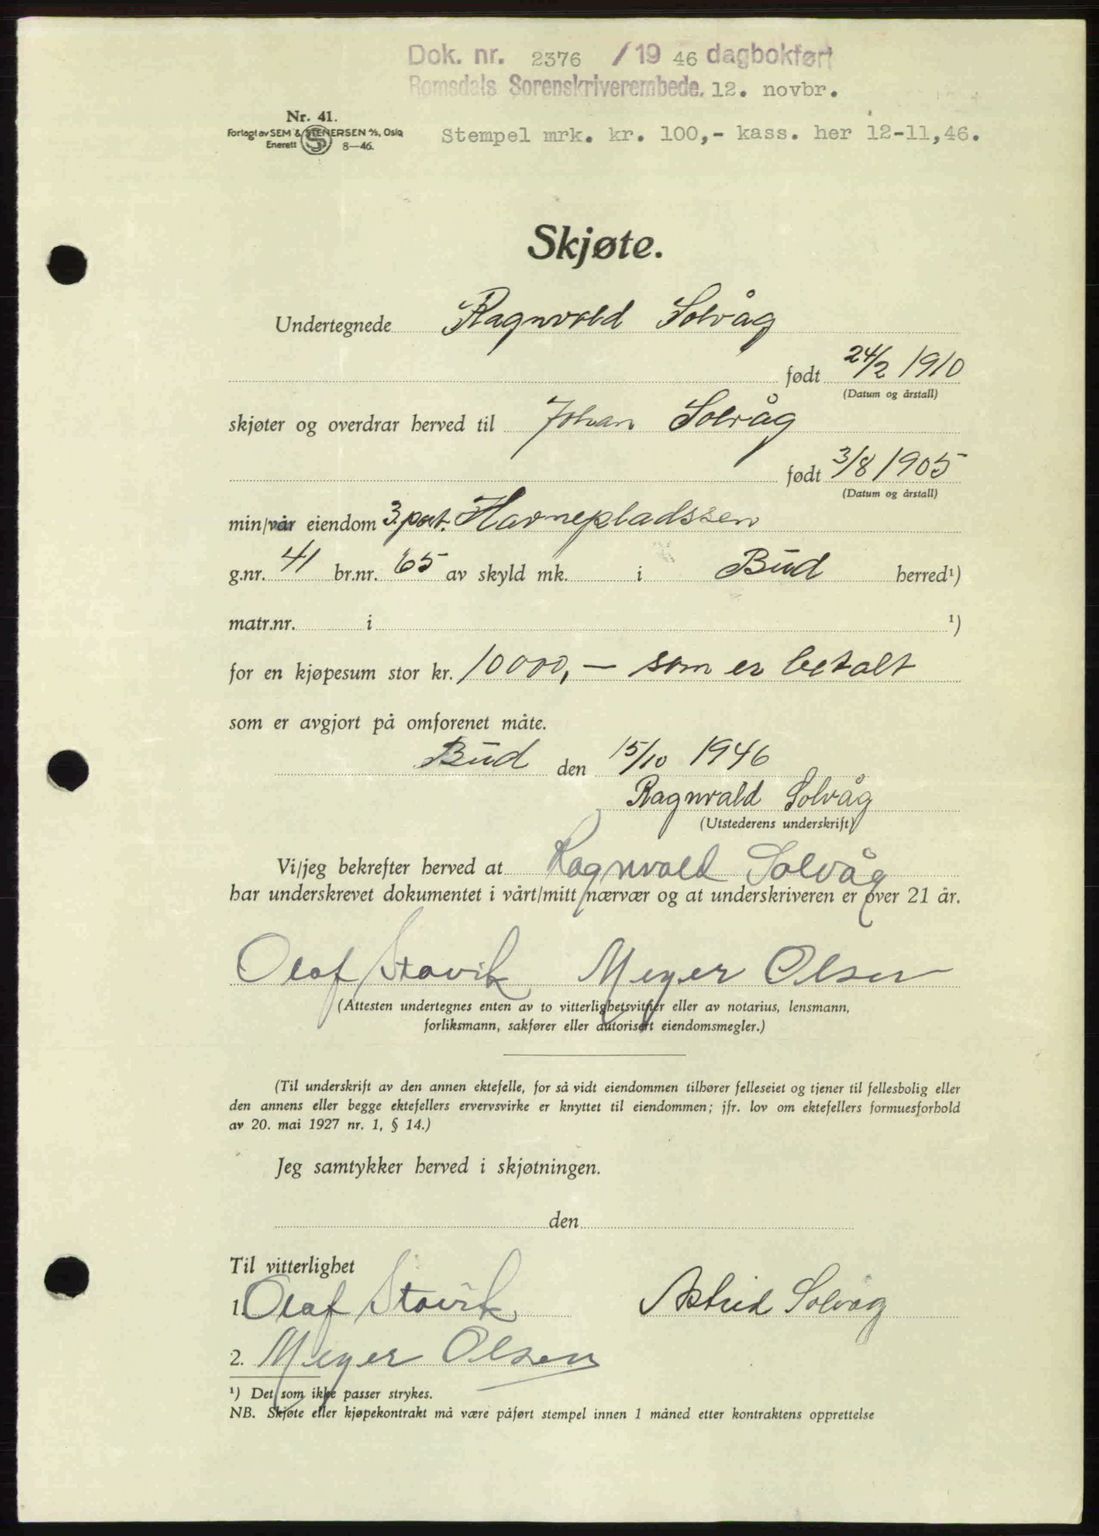 Dok. nr. 2376 /19 46 dagbokført
Romsdals Sorenskriverembede. 12. novbr.
Nr. 41.
Forlagt av SEM & STENERSEN A/S, Oslo
Enerett 8—46.
Stempel mrk. kr. 100,- kass. her 12-11,46.
Skjøte.
Undertegnede Ragnvald Solvåg
født 24/2 1910
(Datum og årstall)
skjøter og overdrar herved til Johan Solvåg
født 3/8 1905
(Datum og årstall)
min/vår eiendom 3.part. Havnepladssen
g.nr. 41 br.nr. 65 av skyld mk. i Bud herred¹)
matr.nr. i ¹)
for en kjøpesum stor kr. 10000,- som er betalt
som er avgjort på omforenet måte.
Bud den 15/10 1946
Ragnvald Solvåg
(Utstederens underskrift)
Vi/jeg bekrefter herved at Ragnvald Solvåg
har underskrevet dokumentet i vårt/mitt nærvær og at underskriveren er over 21 år.
Olaf Stavik Meyer Olsen
(Attesten undertegnes enten av to vitterlighetsvitner eller av notarius, lensmann,
forliksmann, sakfører eller autorisert eiendomsmegler.)
(Til underskrift av den annen ektefelle, for så vidt eiendommen tilhører felleseiet og tjener til fellesbolig eller
den annens eller begge ektefellers ervervsvirke er knyttet til eiendommen; jfr. lov om ektefellers formuesforhold
av 20. mai 1927 nr. 1, § 14.)
Jeg samtykker herved i skjøtningen.
den
Til vitterlighet
1. Olaf Stavik Astrid Solvåg
2. Meyer Olsen
¹) Det som ikke passer strykes.
NB. Skjøte eller kjøpekontrakt må være påført stempel innen 1 måned etter kontraktens opprettelse